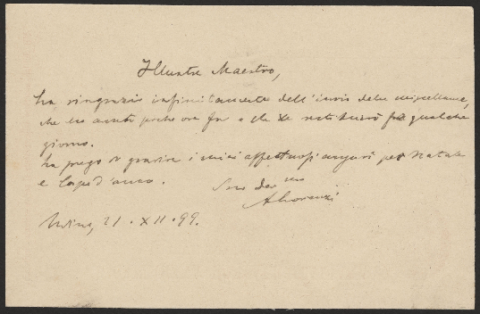 Illustre Maestro,
La ringrazio infinitamente dell'invio della miscellanea,
che ho avuto poche ore fa e che Le restituirò fra qualche
giorno.
La prego di gradire i miei affettuosi auguri per Natale
e Capo d'anno. Suo dev.mo
21 . XII . 99.